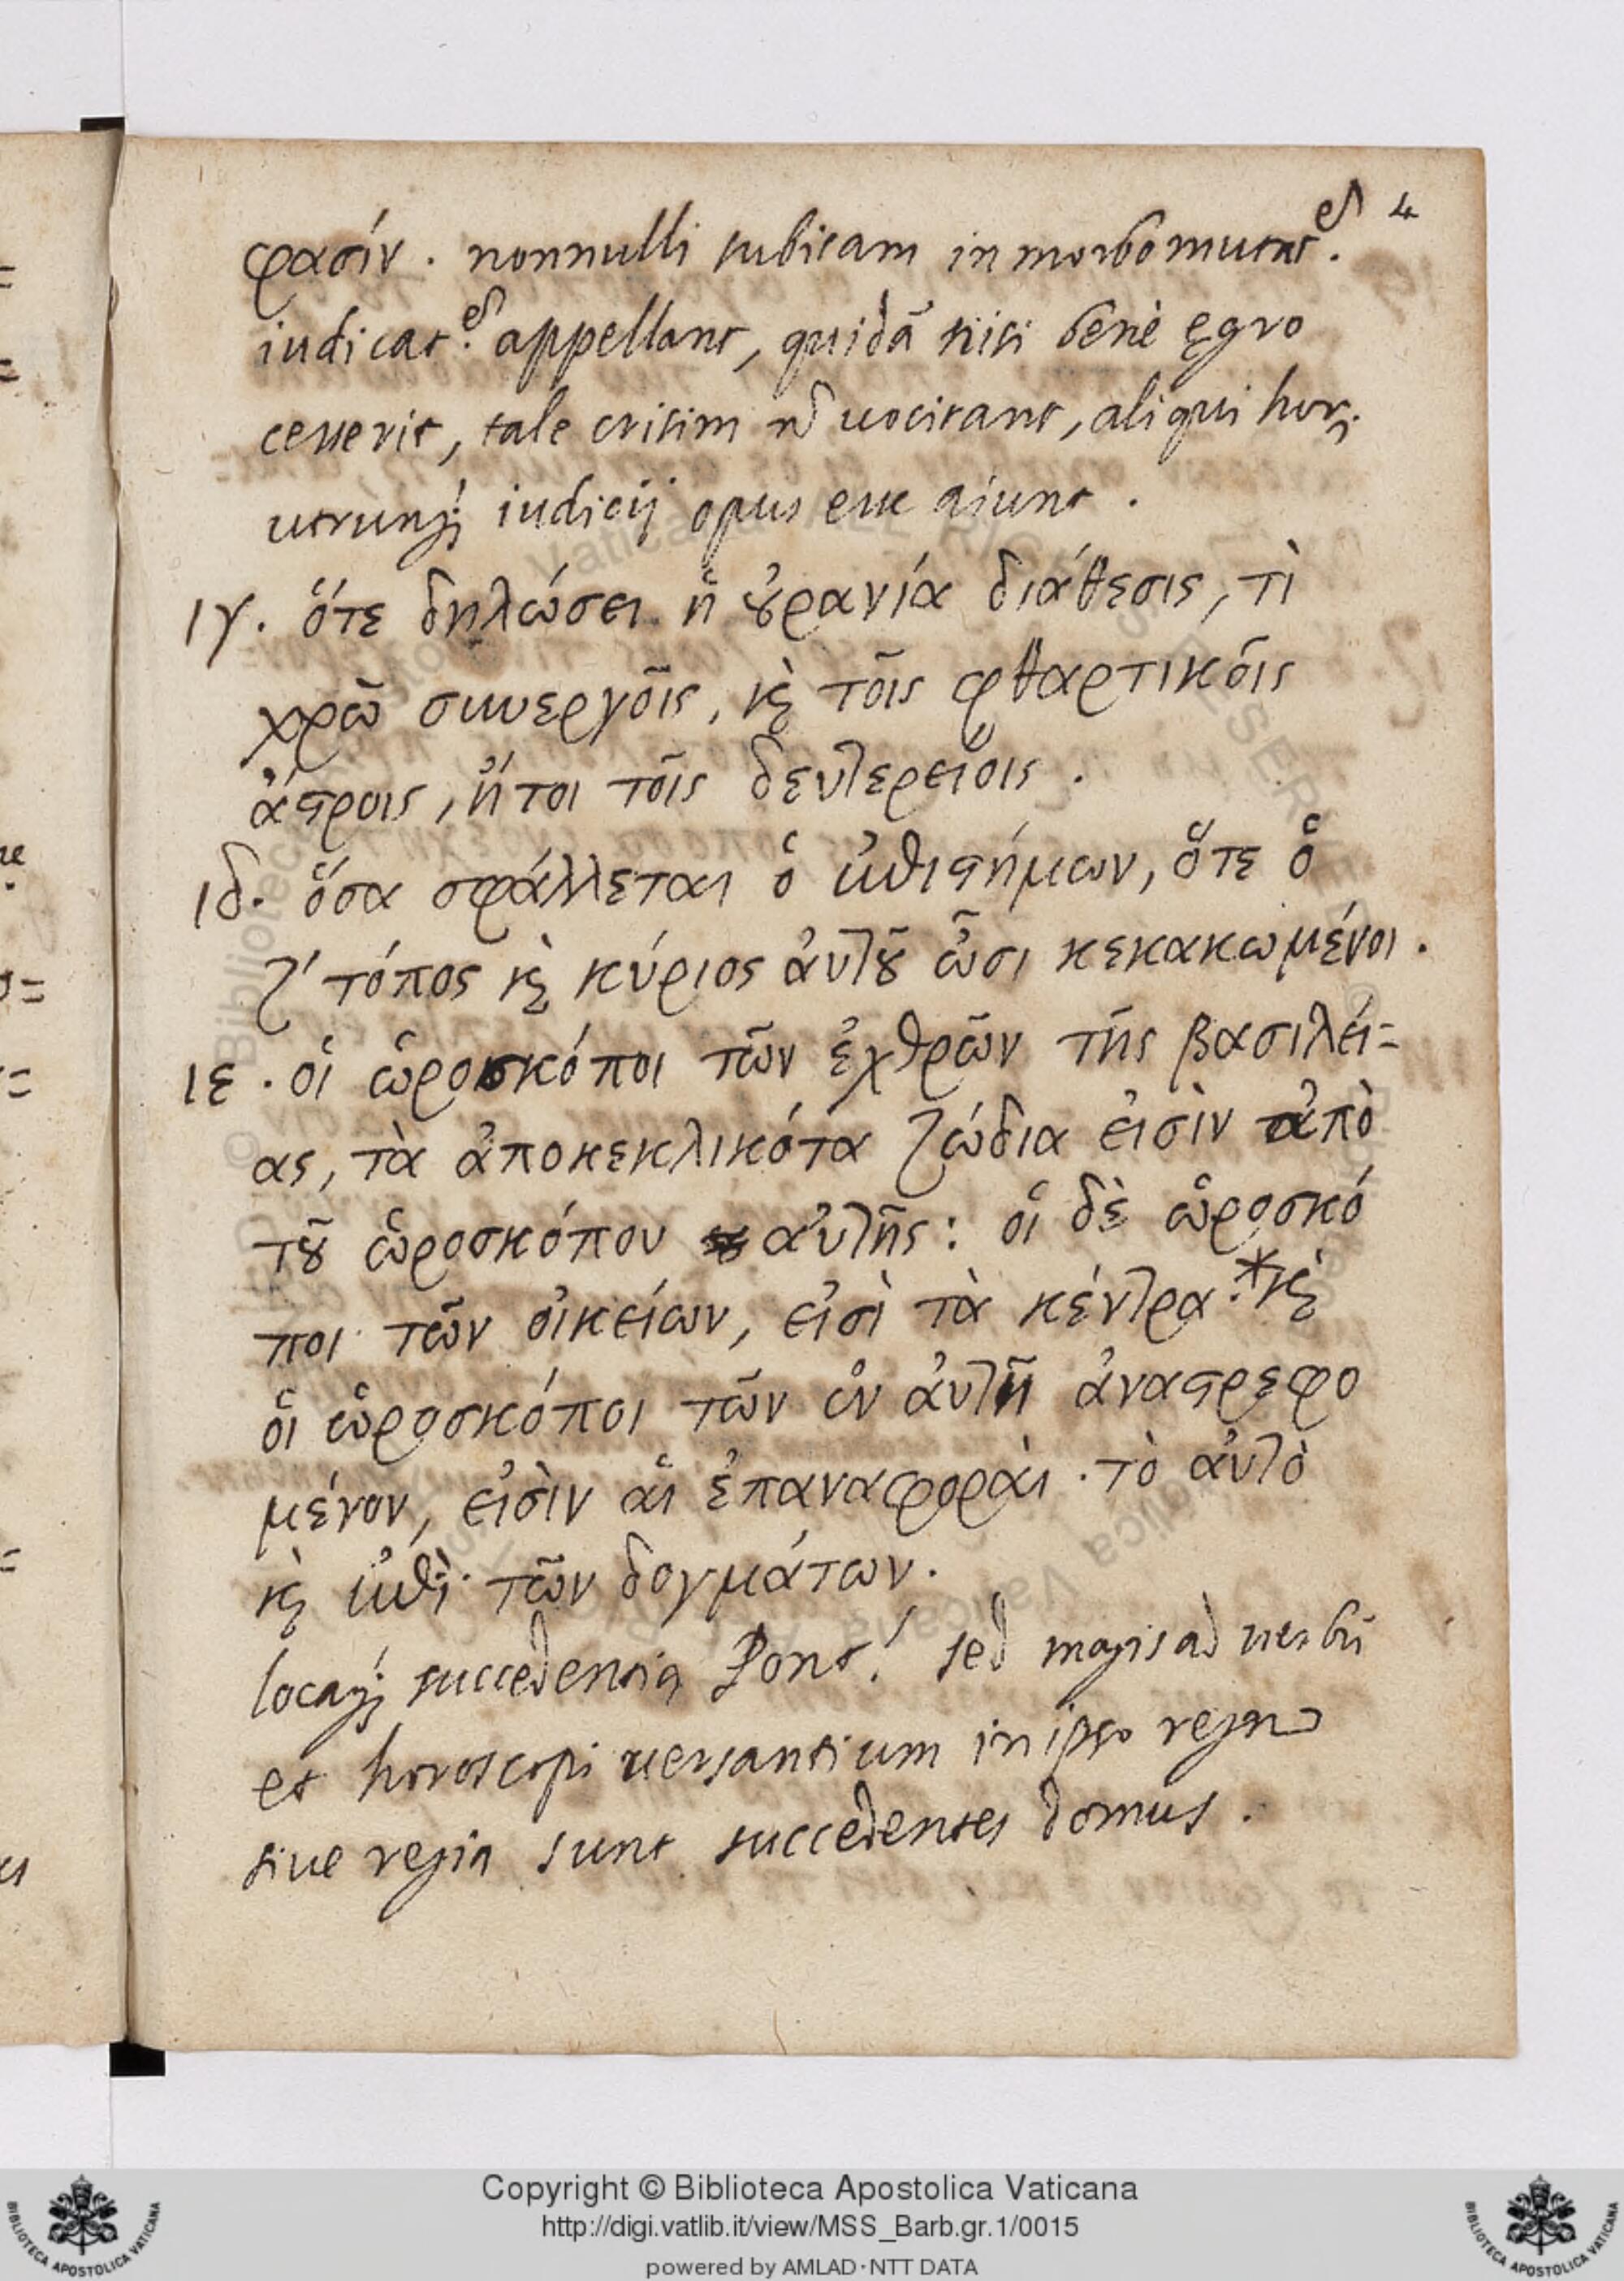 4
φασίν . nonnulli subitam in morbo mutat.
iudicat. appellant, quidã nisi benè ęgro
cesserit, tale crisim n̄ uocitant, aliqui hor.
utrunq; iudicij opus esse aiunt .
ιγ. ὅτε δηλώσει ἡ ȣ̓ρανία διάθεσις, τὶ
χρῶ συνεργοῖς, κ̀ τοῖς φθαρτικοῖς
ἄϛροις, ἤτοι τοῖς δευτερείοις .
ιδ. ὅσα σφάλλεται ὁ ἐπιϛήμων, ὅτε ὁ
ζ' τόπος κ̀ κύριος ἀυτȣ͂ ὦσι κεκακωμένοι .
ιε . οἱ ὡροσκόποι τῶν ἐχθρῶν τῆς βασιλεί=
ας, τὰ ἀποκεκλικότα ζώδια εἰσὶν ἀπὸ
τȣ͂ ὡροσκόπου αὐτῆς : οἱ δὲ ὡροσκό
ποι τῶν οἰκείων, εἰσὶ τὰ κέντρα :* κ̀
ὁι ὡροσκόποι τῶν ἐν ἀυτῆ ἀναϛρεφο
μένον, εἰσὶν ἁι ἐπαναφορὰι . τὸ αὐτὸ
κ̀ ἐπὶ τῶν δογμάτων .
locaq; succedentia Pont. sed magis ad uerbũ
et horoscopi uersantium in ipso regno
siue regia sunt succedentes domus .
Copyright © Biblioteca Apostolica Vaticana
http://digi.vatlib.it/view/MSS_Barb.gr.1/0015
powered by AMLAD·NTT DATA